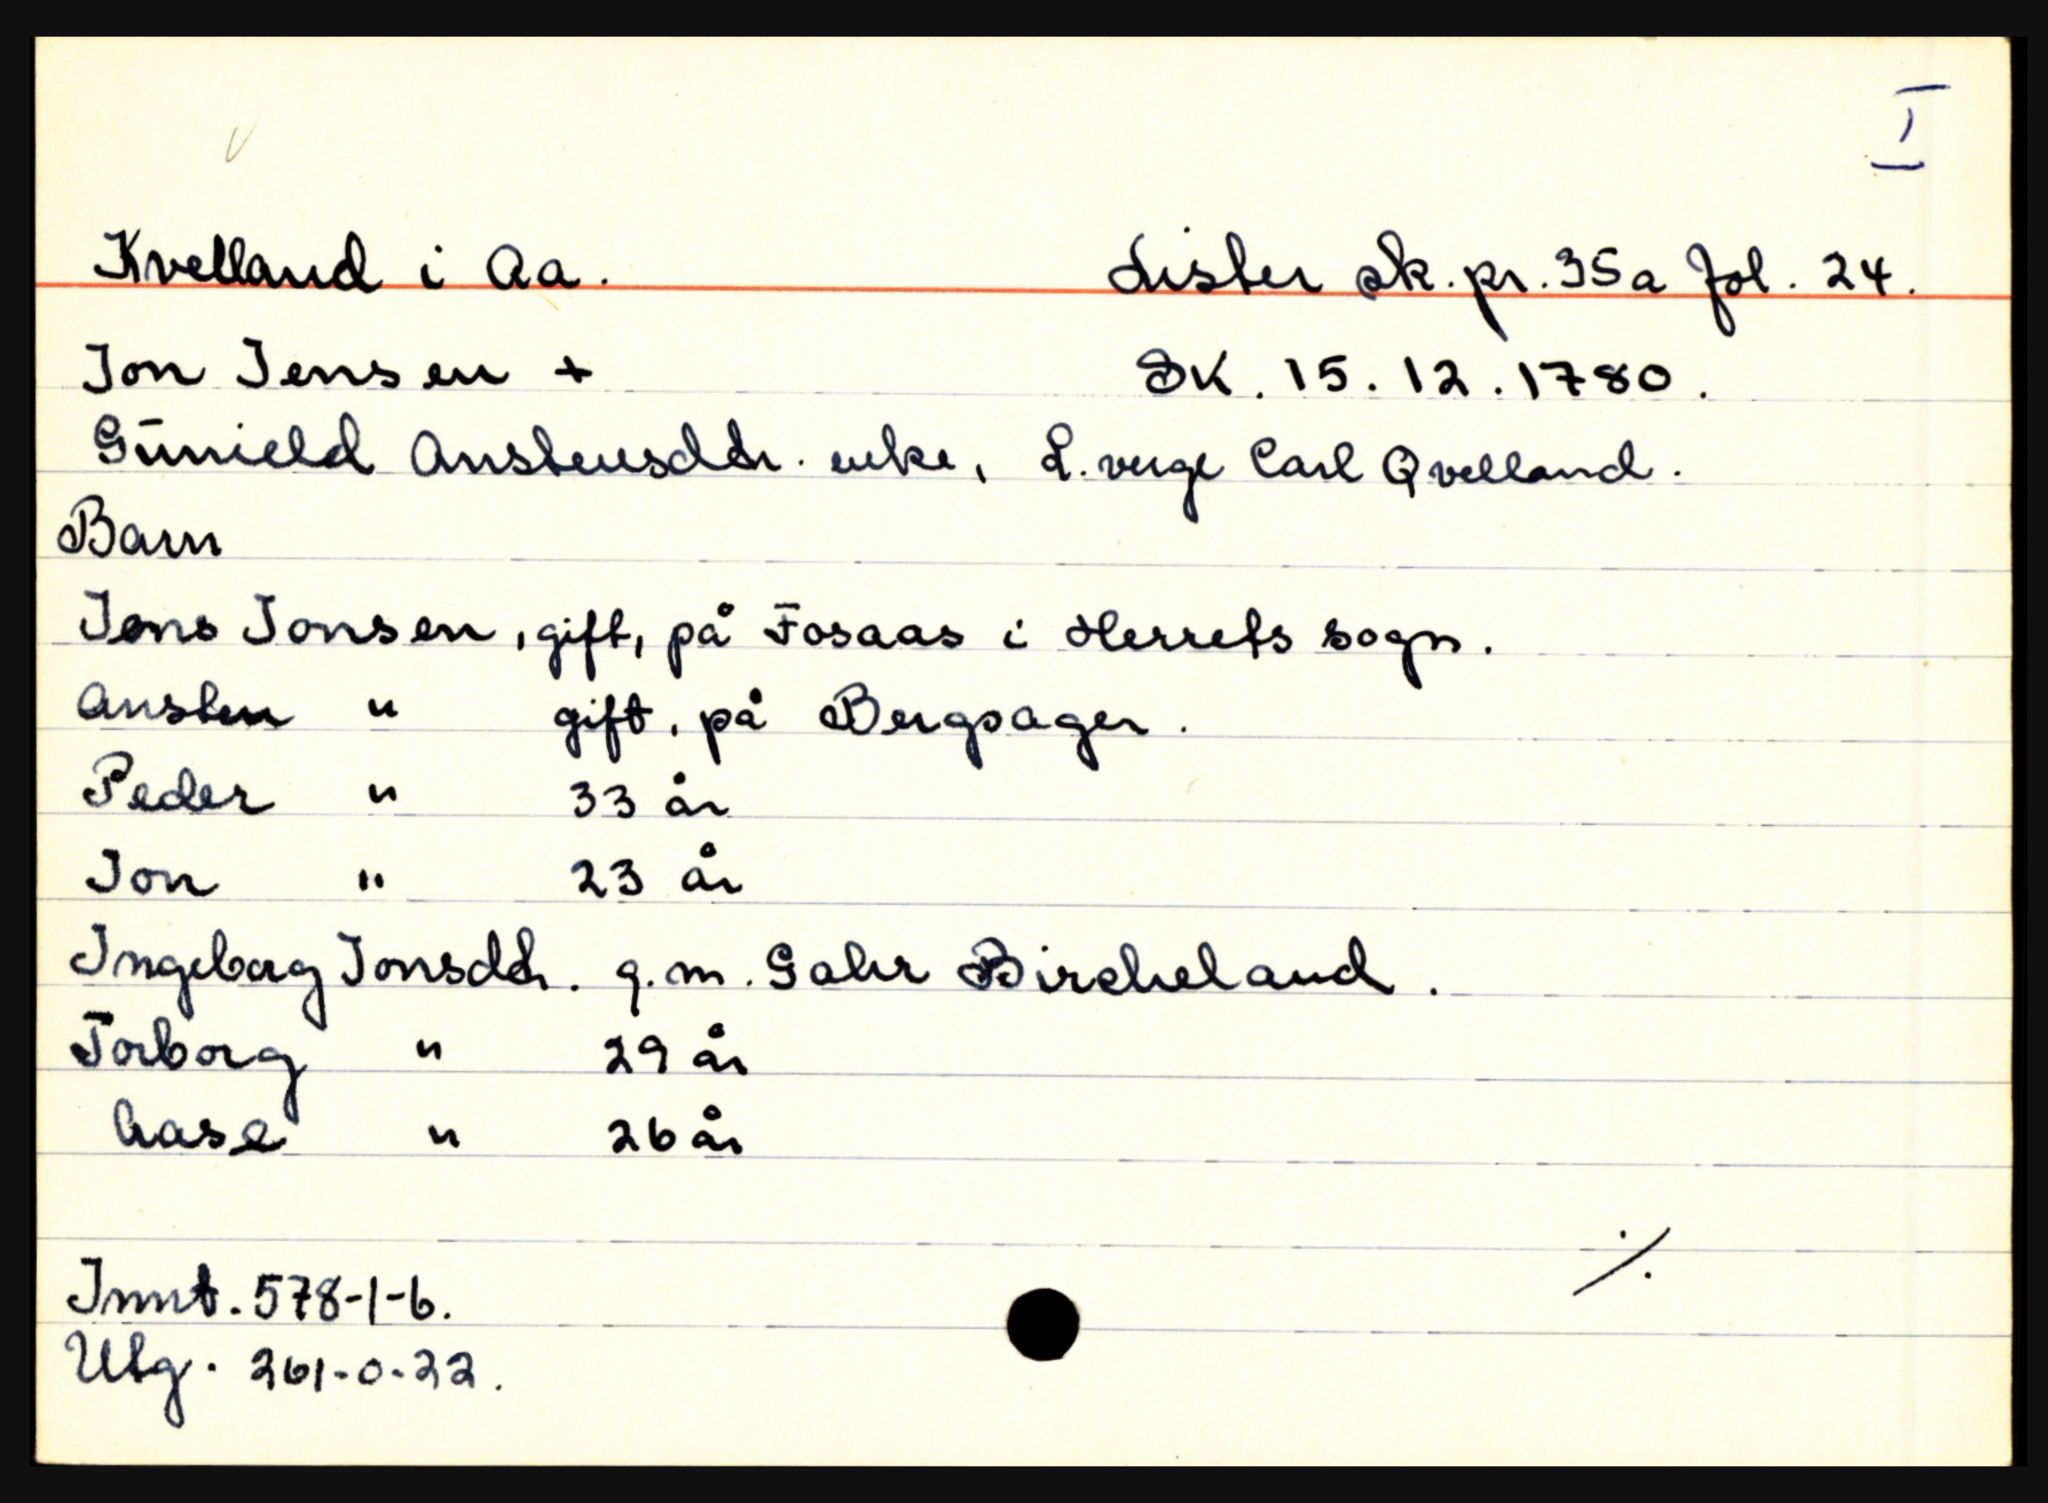 I
Kvelland i Aa. Lister sk. pr. 35a fol. 24.
Jon Jensen + SK. 15.12.1780.
Gūnield Anstensdtr. enke, L. verge Carl Qvelland.
Barn
Jens Jonsen, gift, på Fosaas i Herrets sogn.
Ansten " gift, på Bergsager.
Peder " 33 år
Jon " 23 år
Ingeborg Jonsdtr. g.m. Gahr Bircheland.
Torborg " 29 år
Aase " 26 år
./.
Innt. 578-1-6.
Utg. 261-0-22.